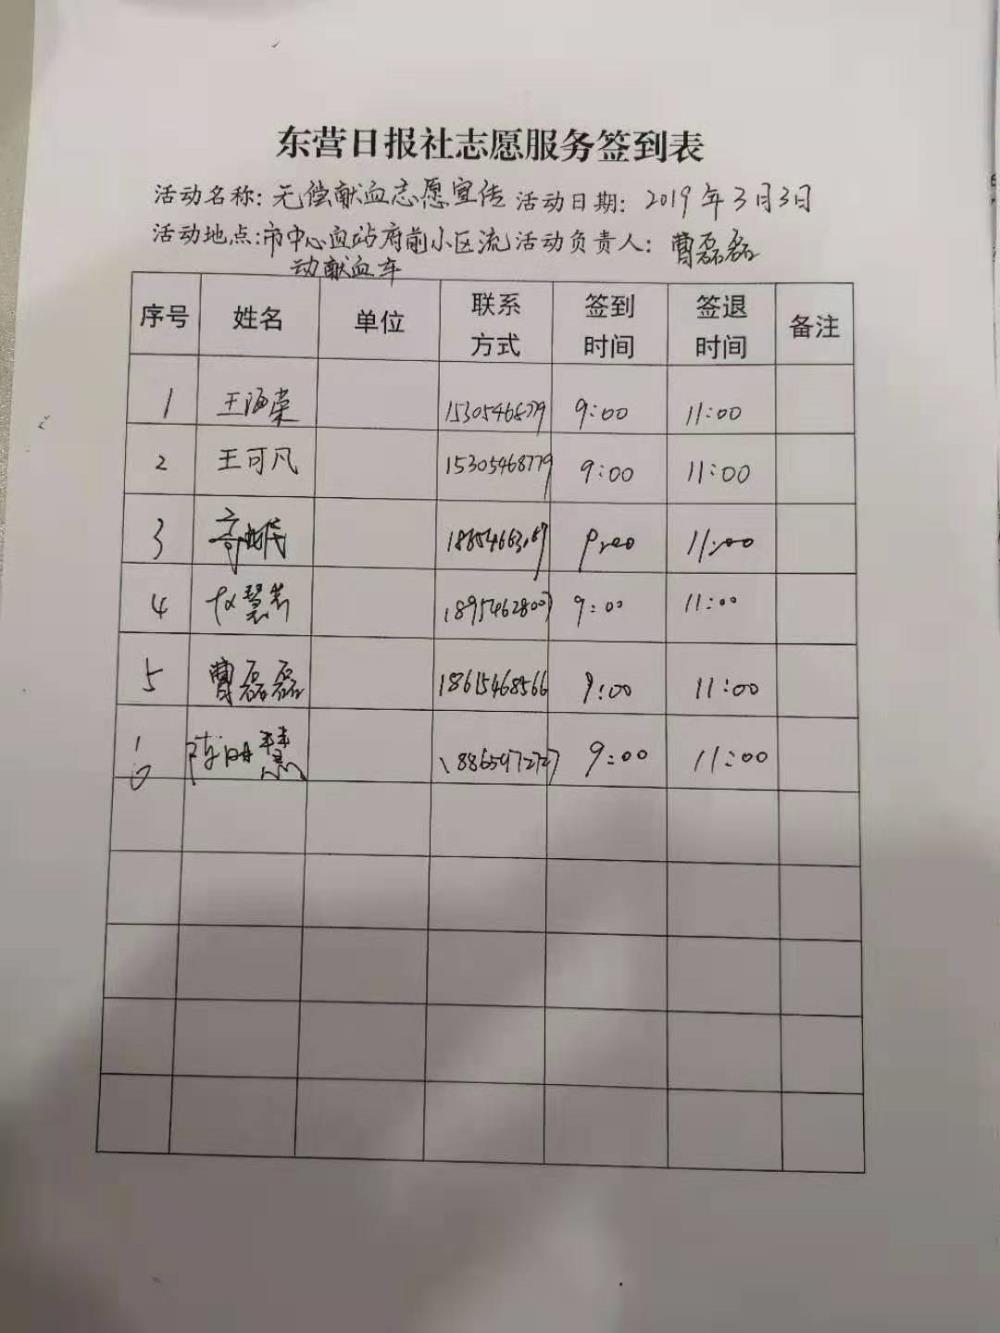 东营日报社志愿服务签到表
活动名称：无偿献血志愿宣传 活动日期：2019年3月3日
活动地点：市中心血站府前小区流 活动负责人：曹磊磊
动献血车
序号 姓名 单位 联系方式 签到时间 签退时间 备注
1 王海荣 15305468779 9:00 11:00
2 王可凡 15305468779 9:00 11:00
3 9:00 11:00
4 18954628007 9:00 11:00
5 曹磊磊 18615468566 9:00 11:00
6 9:00 11:00